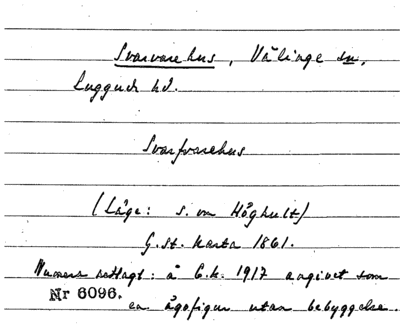 Svarvarehus, Välinge sn,
Luggude hd.
Svarfvarehus
(Läge: s. om Höghult)
G. st. karta 1861.
Numera nedlagt: å E.k. 1917 angivet som
Nr 6096.
en ägofigur utan bebyggelse.